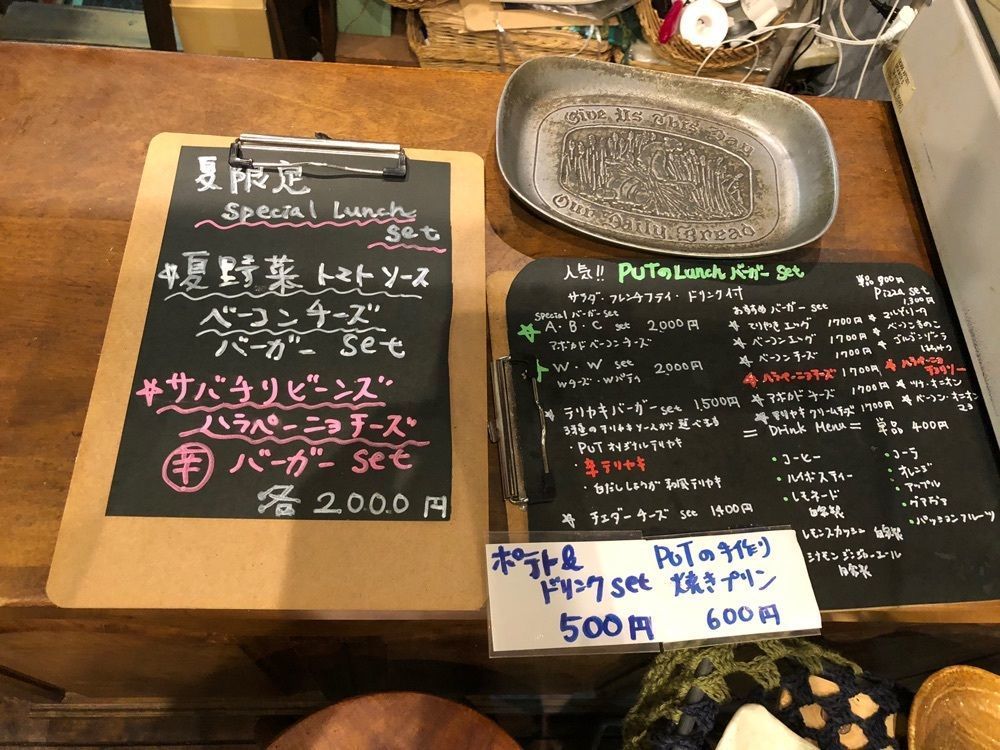 夏限定
special Lunch
set
夏野菜 トマトソース
ベーコンチーズ
バーガー set
サバチリビーンズ
ハラペーニョチーズ
辛 バーガー set
各 2000円
Give Us This Day
Our Daily Bread
人気!! PUTのLunch バーガー set
サラダ・フレンチフライ・ドリンク付
special バーガー set
A・B・C set 2000円
アボカド ベーコン チーズ
W・W set 2000円
Wチーズ・Wパティ
テリヤキバーガー set 1,500円
3種のテリヤキソースが選べます
・PUT オリジナルテリヤキ
・辛テリヤキ
・白だししょうが 和風テリヤキ
チェダーチーズ set 1400円
おすすめ バーガー set
てりやきエッグ 1700円
ベーコンエッグ 1700円
ベーコンチーズ 1700円
ハラペーニョチーズ 1700円
アボカドチーズ 1700円
テリヤキクリームチーズ 1700円
単品 900円
Pizza set
1,300円
マルゲリータ
ベーコンきのこ
ゴルゴンゾーラ
はちみつ
ハラペーニョ
ツナ・オニオン
ベーコン・オニオン
= Drink Menu = 単品 400円
・コーヒー
・ルイボスティー
・レモネード
自家製
レモンスカッシュ 自家製
シナモンジンジャーエール
自家製
・コーラ
・オレンジ
・アップル
・グアバ
・パッションフルーツ
ポテト&
ドリンク set
500円
PUTの手作り
焼きプリン
600円